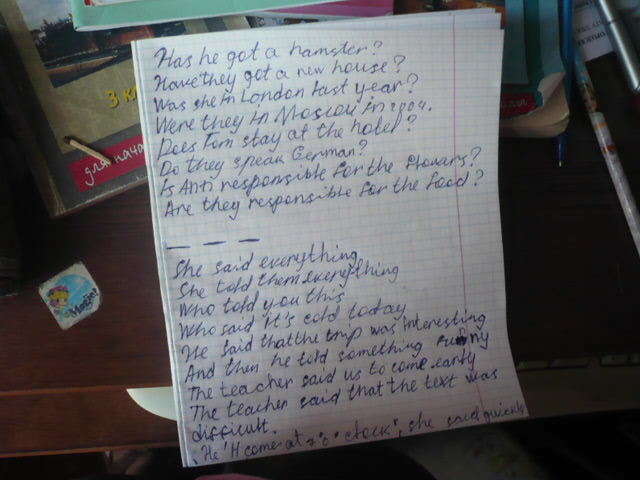 Has he got a hamster?
Have they got a new house?
Was she in London last year?
Were they in Moscow in 2004.
Does Tom stay at the hotel?
Do they speak German?
Is Ann responsible for the flowars?
Are they responsible for the food?
She said everything
She told them everything
Who told you this
Who said it's cold today
He said that the trip was interesting
And then he told something funny
The teacher said us to come early
The teacher said that the text was
difficult.
"He'll come at 7 o'clock", she said quickly
3 к
для нача